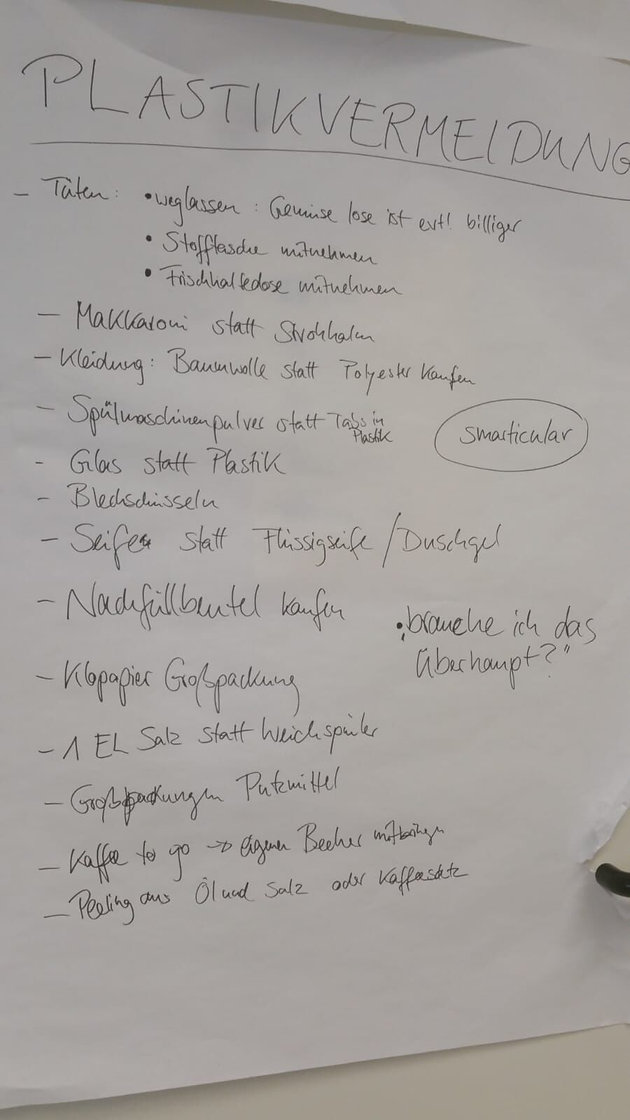 PLASTIKVERMEIDUNG
- Tüten: • weglassen: Gemüse lose ist evtl. billiger
• Stofftasche mitnehmen
• Frischhaltedose mitnehmen
- Makkaroni statt Strohhalm
- Kleidung: Baumwolle statt Polyester kaufen
- Spülmaschinenpulver statt Tabs in Plastik
smarticular
- Glas statt Plastik
- Blechschüsseln
- Seife statt Flüssigseife / Duschgel
- Nachfüllbeutel kaufen
• „brauche ich das
überhaupt?"
- Klopapier Großpackung
- 1 EL Salz statt Weichspüler
- Großpackungen Putzmittel
- Kaffee to go → eigenen Becher mitbringen
- Peeling aus Öl und Salz oder Kaffeesatz